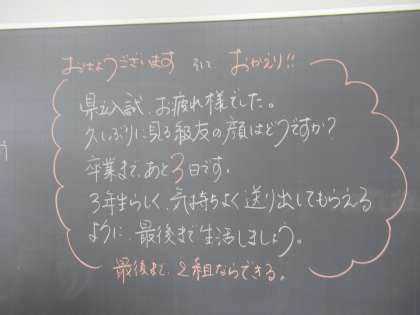 おはようございます そして おかえり!!
県立入試、お疲れ様でした。
久しぶりに見る級友の顔はどうですか?
卒業まで、あと3日です。
3年生らしく、気持ちよく送り出してもらえる
ように、最後まで生活しましょう。
最後まで、2組ならできる。